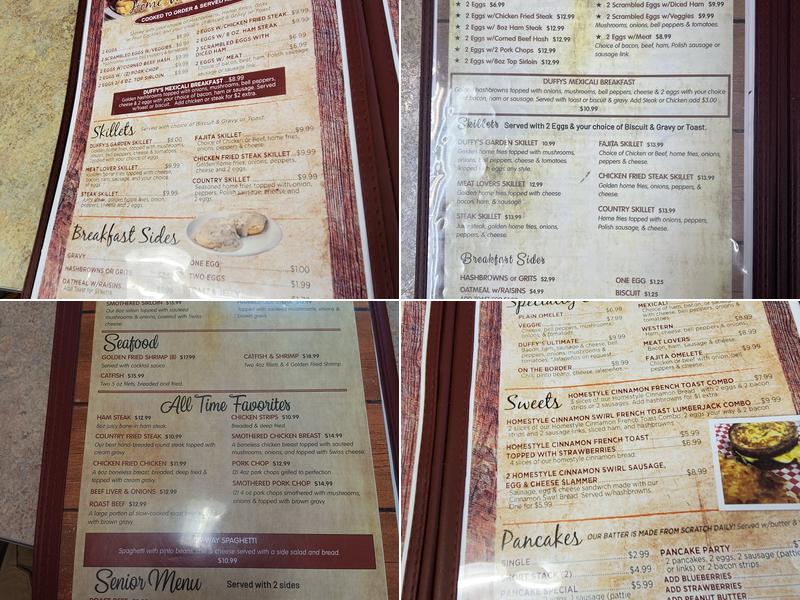 COOKED TO ORDER & SERVED
2 EGGS
2 SCRAMBLED EGGS W/VEGGIES
2 EGGS W/CORNED BEEF HASH
2 EGGS W/ (2) PORK CHOP
2 EGGS W/ 8 OZ. TOP SIRLOIN
2 EGGS W/CHICKEN FRIED STEAK $9.99
2 EGGS W/ 8 OZ. HAM STEAK $9.99
2 SCRAMBLED EGGS WITH
DICED HAM
2 EGG W/ MEAT $6.99
DUFFY'S MEXICALI BREAKFAST ..$8.99
Golden hashbrowns topped with onions, mushrooms, bell peppers,
cheese & 2 eggs with your choice of bacon, ham or sausage. Served
w/toast or biscuit. Add chicken or steak for $2 extra.
Skillets Served with choice of Biscuit & Gravy or Toast.
DUFFY'S GARDEN SKILLET
MEAT LOVER SKILLET $9.99
STEAK SKILLET $9.99
peppers, cheese and 2 eggs.
FAJITA SKILLET $9.99
Choice of Chicken or Beef, home fries,
onions, peppers & cheese.
CHICKEN FRIED STEAK SKILLET $9.99
Golden home fries, onions, peppers,
cheese and 2 eggs.
COUNTRY SKILLET $9.99
Seasoned home fries topped with onion,
peppers, Polish sausage cheese and
2 eggs.
Breakfast Sides
GRAVY
HASHBROWNS OR GRITS
OATMEAL W/RAISINS
ONE EGG $1.00
TWO EGGS $1.99
★ 2 Eggs $6.99
★ 2 Eggs w/Chicken Fried Steak $12.99
★ 2 Eggs w/ 8oz Ham Steak $12.99
★ 2 Eggs w/Corned Beef Hash $12.99
★ 2 Eggs w/2 Pork Chops $12.99
★ 2 Eggs w/8oz Top Sirloin $12.99
★ 2 Scrambled Eggs w/Diced Ham $9.99
★ 2 Scrambled Eggs w/Veggies $9.99
Mushrooms, onions, bell peppers & tomatoes.
★ 2 Eggs w/Meat $8.99
Choice of bacon, beef, ham, Polish sausage or
sausage link.
DUFFY'S MEXICALI BREAKFAST
hashbrowns topped with onions, mushrooms, bell peppers, cheese & 2 eggs with your choice
of bacon, ham or sausage. Served with toast or biscuit & gravy. Add Steak or Chicken add $3.00
$10.99
Skillets Served with 2 Eggs & your choice of Biscuit & Gravy or Toast.
DUFFY'S GARDEN SKILLET 10.99
Golden home fries topped with mushrooms,
onions, peppers, cheese & tomatoes
eggs any style.
MEAT LOVERS SKILLET 12.99
Golden home fries topped with cheese
bacon, ham, & sausage
STEAK SKILLET $13.99
Juicy steak, golden home fries, onions,
peppers, & cheese.
FAJITA SKILLET $13.99
Choice of Chicken or Beef, home fries, onions,
peppers, & cheese.
CHICKEN FRIED STEAK SKILLET $13.99
Golden home fries, onions, peppers, &
cheese.
COUNTRY SKILLET $13.99
Home fries topped with onions, peppers,
Polish sausage, & cheese.
Breakfast Sides
HASHBROWNS or GRITS $2.99
OATMEAL w/RAISINS $4.99
ONE EGG $1.25
BISCUIT $1.25
SMOTHERED SIRLOIN $15.99
Our 8oz sirloin topped with sauteed
mushrooms & onions, covered with Swiss
cheese.
topped with sauteed mushrooms, onions &
brown gravy.
Seafood
GOLDEN FRIED SHRIMP (8) $17.99
Served with cocktail sauce
CATFISH $15.99
Two 5 oz filets, breaded and fried.
CATFISH & SHRIMP $18.99
Two 4oz fillets & 4 Golden Fried Shrimp
All Time Favorites
HAM STEAK $12.99
8oz juicy bone-in ham steak.
COUNTRY FRIED STEAK $10.99
Our beef hand-breaded round steak topped with
cream gravy
CHICKEN FRIED CHICKEN $11.99
A 6oz boneless breast, breaded, deep fried &
topped with cream gravy
BEEF LIVER & ONIONS $12.99
ROAST BEEF $12.99
A large portion of slow-cooked roast beef
with brown gravy
CHICKEN STRIPS $10.99
Breaded & deep fried
SMOTHERED CHICKEN BREAST $14.99
A boneless chicken breast topped with sauteed
mushrooms, onions, and topped with Swiss cheese.
PORK CHOP $12.99
(2) 4oz pork chops grilled to perfection
SMOTHERED PORK CHOP $14.99
(2) 4 oz pork chops smothered with mushrooms,
onions & topped with brown gravy.
WAY SPAGHETTI
Spaghetti with pinto beans, & cheese served with a side salad and bread.
$10.99
Senior Menu Served with 2 sides
PLAIN OMELET $6.99
VEGGIE $7.99
Onion, bell peppers, mushrooms,
DUFFY'S ULTIMATE $9.99
Bacon, ham, sausage & cheese, bell
peppers, onions, mushrooms &
tomatoes. *Jalapenos on request
ON THE BORDER $8.99
Chili, pinto beans, cheese, jalapeño
MEXICALI
WESTERN $8.99
Ham, cheese, bell peppers & onions.
MEAT LOVERS $8.99
Bacon, ham, sausage & cheese.
FAJITA OMELETE $9.99
Chicken or beef with onion, bell
peppers & cheese.
Sweets
HOMESTYLE CINNAMON FRENCH TOAST COMBO $7.99
3 slices of our Homestyle Cinnamon Bread with 2 eggs & 2 bacon
strips or 2 sausages. Add hashbrowns for $1 extra.
HOMESTYLE CINNAMON SWIRL FRENCH TOAST LUMBERJACK COMBO $9.99
2 slices of our Homestyle Cinnamon French Toast Combo, 2 eggs your way & 2 bacon
strips and 2 sausage links, sliced ham, and hashbrowns.
HOMESTYLE CINNAMON FRENCH TOAST $5.99
TOPPED WITH STRAWBERRIES $6.99
4 slices of our homestyle cinnamon bread.
2 HOMESTYLE CINNAMON SWIRL SAUSAGE,
EGG & CHEESE SLAMMER $8.99
Sausage, egg & cheese sandwich made with our
Cinnamon Swirl Bread. Served w/hashbrowns.
One for $5.99
Pancakes OUR BATTER IS MADE FROM SCRATCH DAILY! Served w/butter &
SINGLE $2.99
SHORT STACK (2) $4.99
PANCAKE SPECIAL $5.99
2 eggs, 1 sausage (pattie
PANCAKE PARTY
2 pancakes, 2 eggs, 2 sausage (pattie
or links) or 2 bacon strips.
ADD BLUEBERRIES
ADD STRAWBERRIES
ADD PEANUT BUTTER